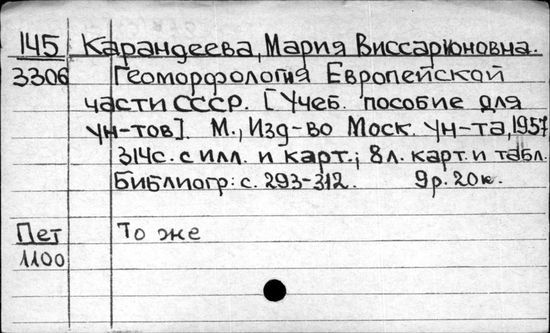 145 Карандеева, Мария Виссарионовна.
3306 Геоморфология Европейской
части СССР. [Учеб. пособие для
ун-тов]. М., Изд-во Моск. ун-та, 1957
314с. с илл. и карт.; 8л. карт. и табл.
Библиогр: с. 293-312. 9р. 20к.
Пет То же
1100